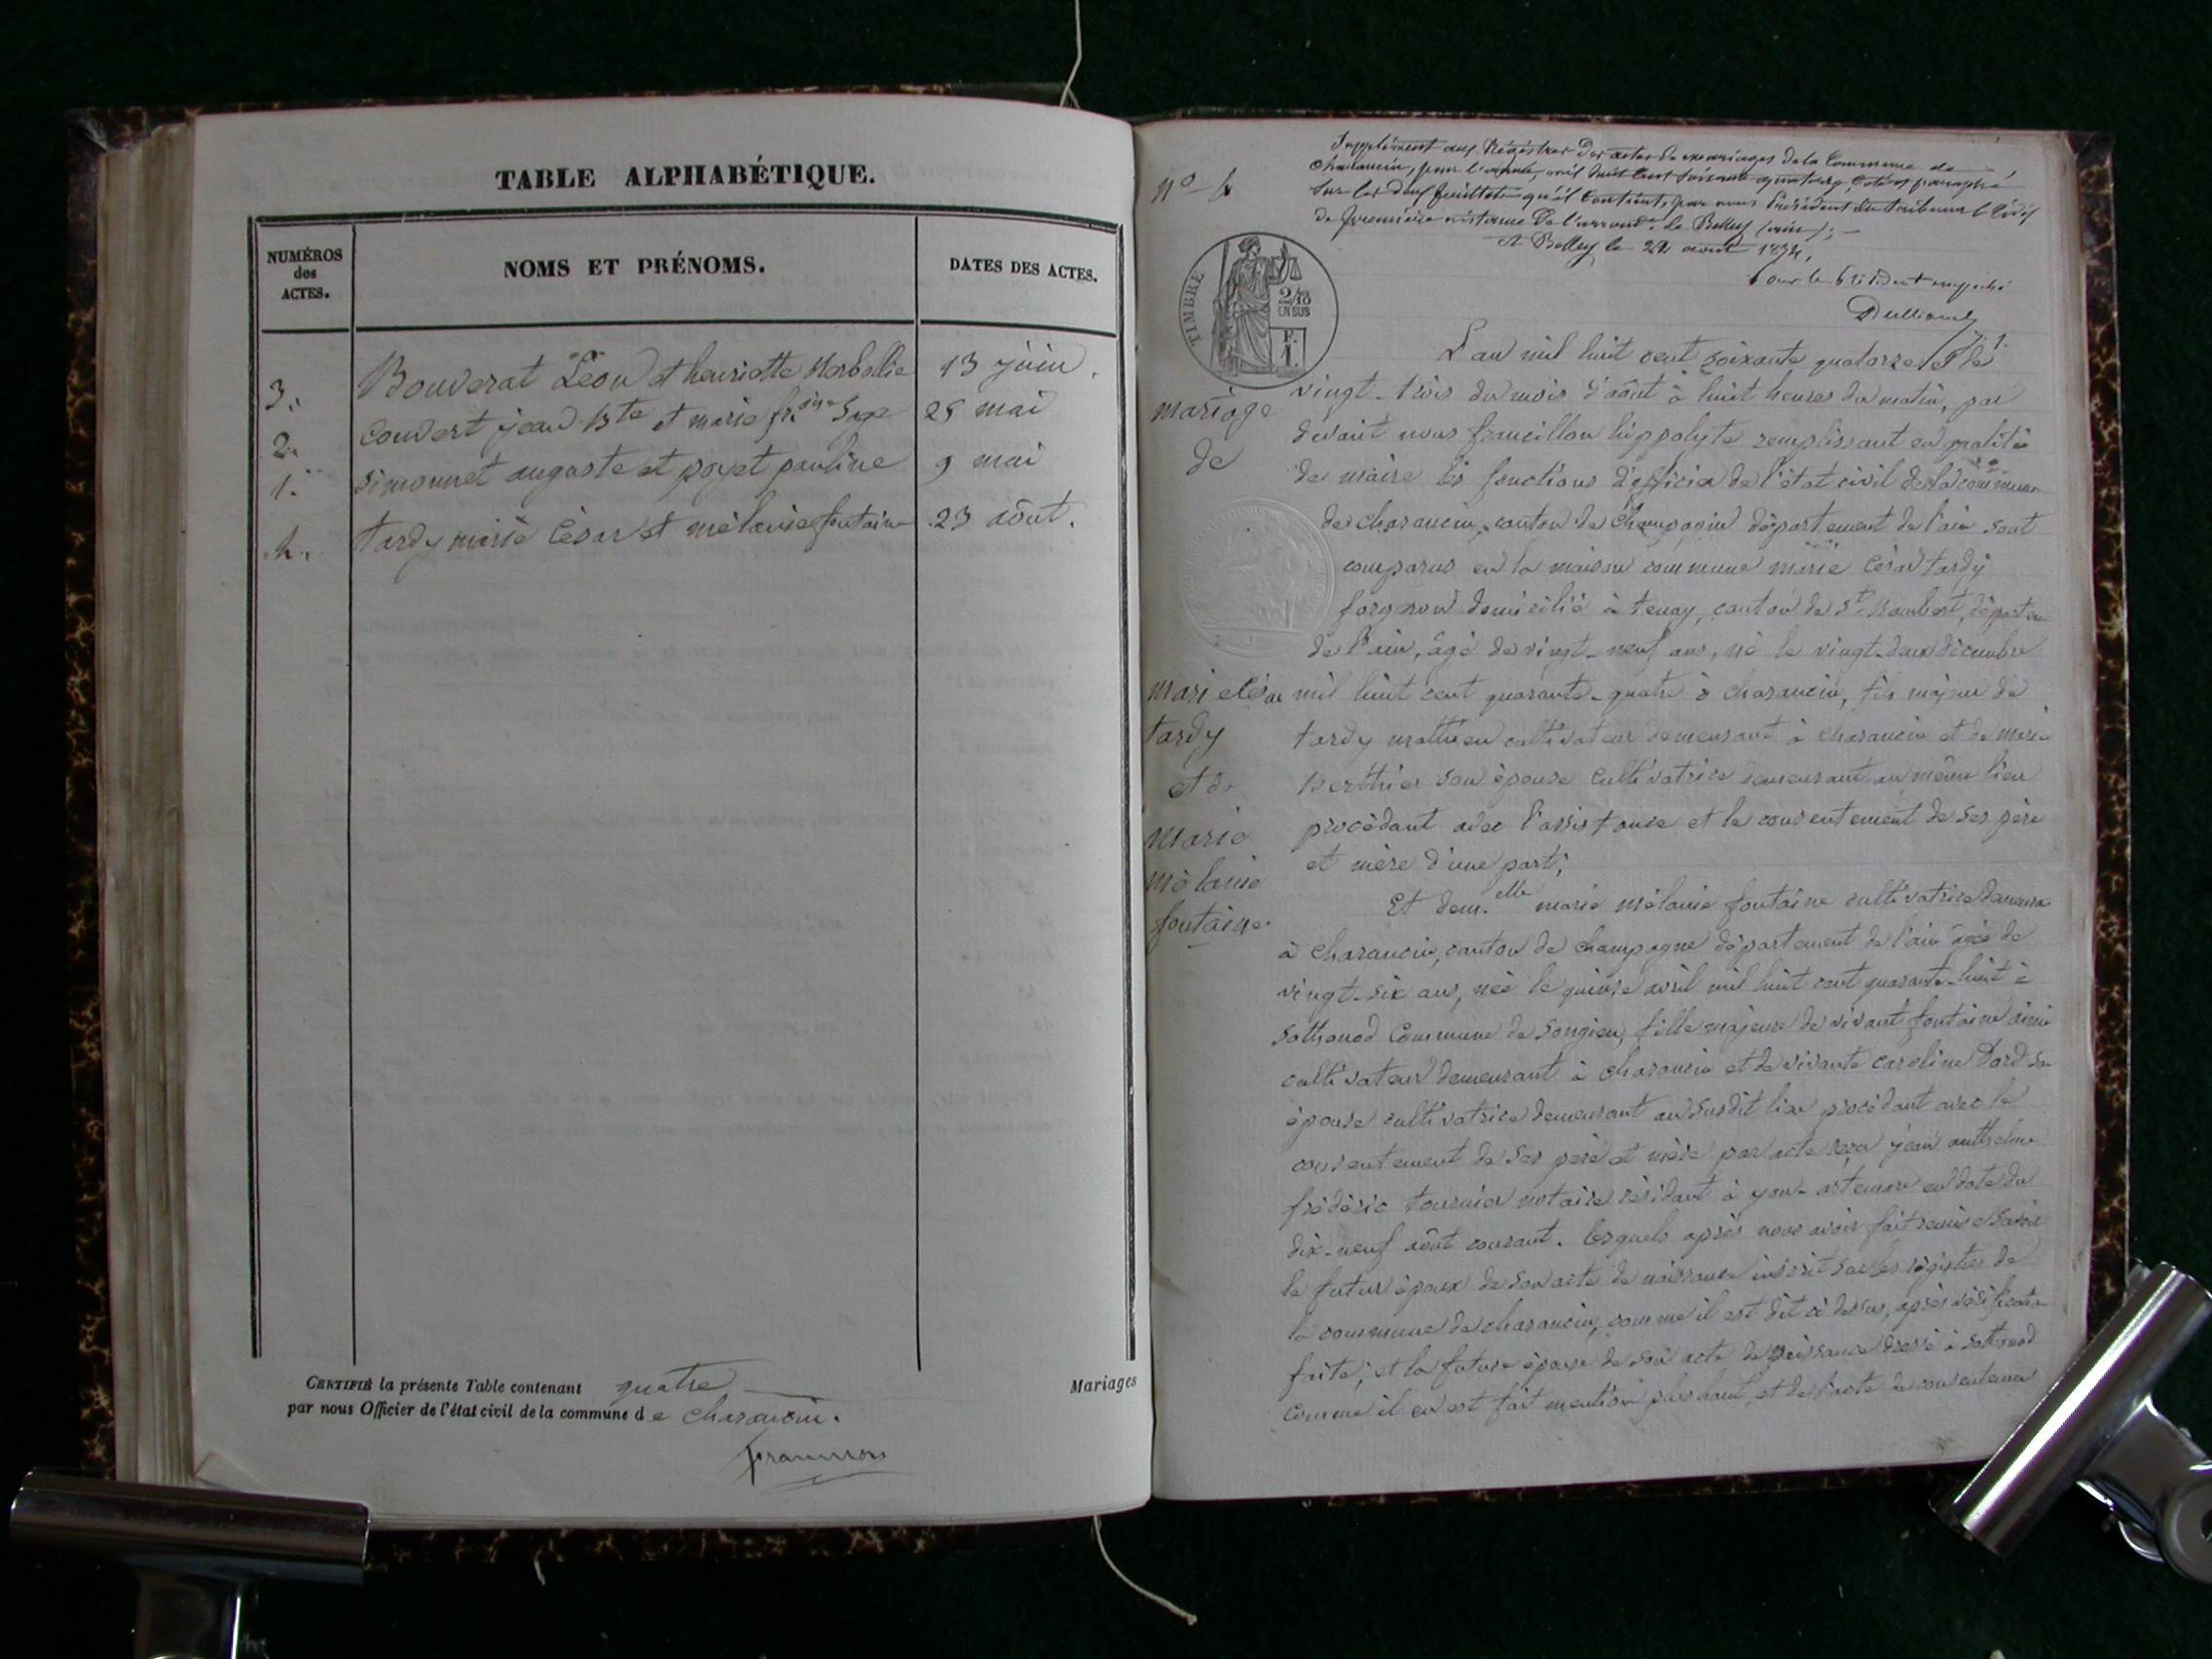 TABLE ALPHABÉTIQUE.
NUMÉROS des ACTES.
NOMS ET PRÉNOMS.
DATES DES ACTES.
3. Bouverat Léon et henriette 13 juin.
2. Couvert jean Bte et marie 25 mai
1. simonnet auguste et poyet pauline 9 mai
4. tardy marie César et mélanie fontaine 23 août.
CERTIFIÉ la présente Table contenant quatre
par nous Officier de l'état civil de la commune de charancin.
Mariages
Supplément aux Régistres des actes de mariages de la Commune de
charancin, pour l'année mil huit cent soixante quatorze, coté et paraphé
sur les deux feuillets qu'il contient, par nous Président du tribunal Civil
de première instance de l'arrondt de Belley (ain);
à Belley le août 1874.
Pour le Président empêché
n° 4
TIMBRE
2/10
EN SUS
F.
1.
mariage
de
mari César
tardy
et de
marie
mélanie
fontaine.
L'an mil huit cent soixante quatorze et le
vingt-trois du mois d'août à huit heures du matin, par
devant nous francillon hippolyte remplissant en qualité
de maire les fonctions d'officier de l'état civil de la commune
de charancin, canton de Champagne département de l'ain sont
comparus en la maison commune marie César tardy
forgeron domicilié à tenay, canton de St Rambert, départem
de l'ain, âgé de vingt-neuf ans, né le vingt-deux décembre
mil huit cent quarante-quatre à charancin, fils majeur de
tardy mathieu cultivateur demeurant à charancin et de marie
Berthier son épouse cultivatrice demeurant au même lieu
procédant avec l'assistance et le consentement de ses père
et mère d'une part;
Et dem.elle marie mélanie fontaine cultivatrice demeura
à charancin, canton de champagne département de l'ain âgée de
vingt-six ans, née le quinze avril mil huit cent quarante-huit à
sothonod Commune de songieu, fille majeure de vivant fontaine aimé
cultivateur demeurant à charancin et de vivante caroline sa
épouse cultivatrice demeurant au susdit lieu procédant avec le
consentement de ses père et mère par acte reçu jean anthelme
frédéric tournier notaire résidant à yon-artemare en date du
dix-neuf août courant. lesquels après nous avoir fait remise savoir
le futur époux de son acte de naissance inscrit sur les régistres de
la commune de charancin, comme il est dit ci dessus, après vérification
faite; et la future épouse de son acte de naissance dressé à sothonod
comme il en est fait mention plus haut, et de l'acte de consentement